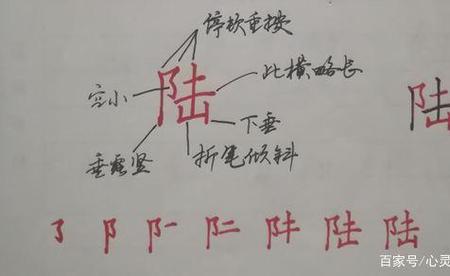 停顿重按
宜小 陆 此横略长
陆
下垂
垂露竖 折笔倾斜
阝 陆 陆
百家号/心灵